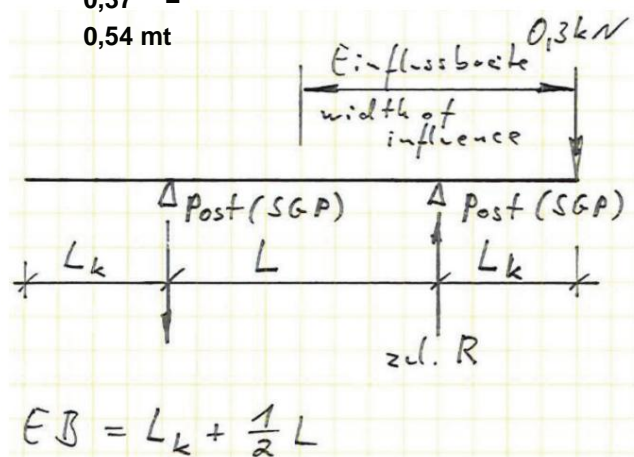 0,37 =
0,54 mt
0,3kN
Einflussbreite
width of
influence
Post (SGP)
Post (SGP)
Lk
L
Lk
zul. R
EB = Lk + 1/2 L